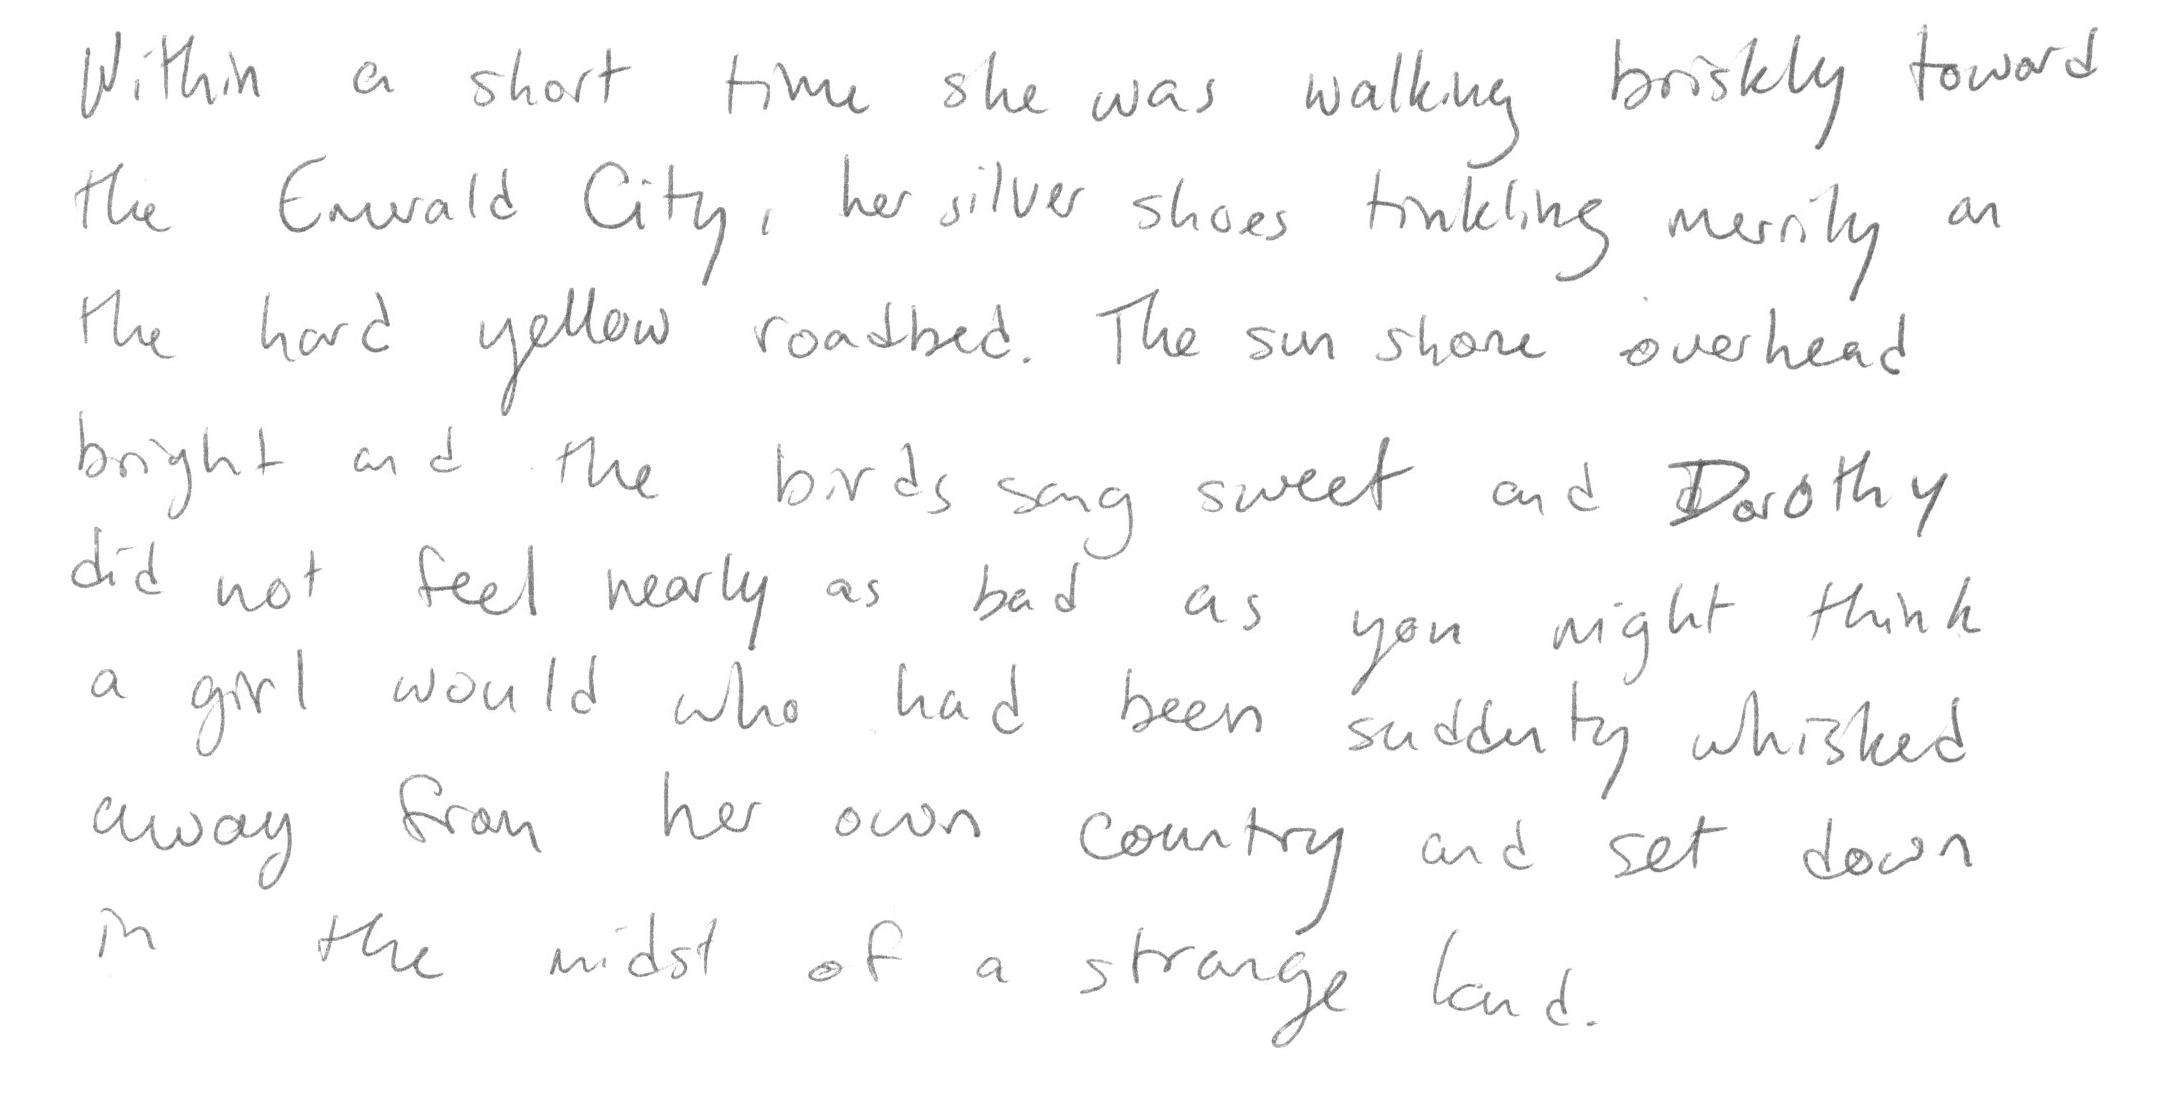 Within a short time she was walking briskly toward
the Emerald City, her silver shoes tinkling merrily on
the hard yellow roadbed. The sun shone overhead
bright and the birds sang sweet and Dorothy
did not feel nearly as bad as you might think
a girl would who had been suddenly whisked
away from her own country and set down
in the midst of a strange land.